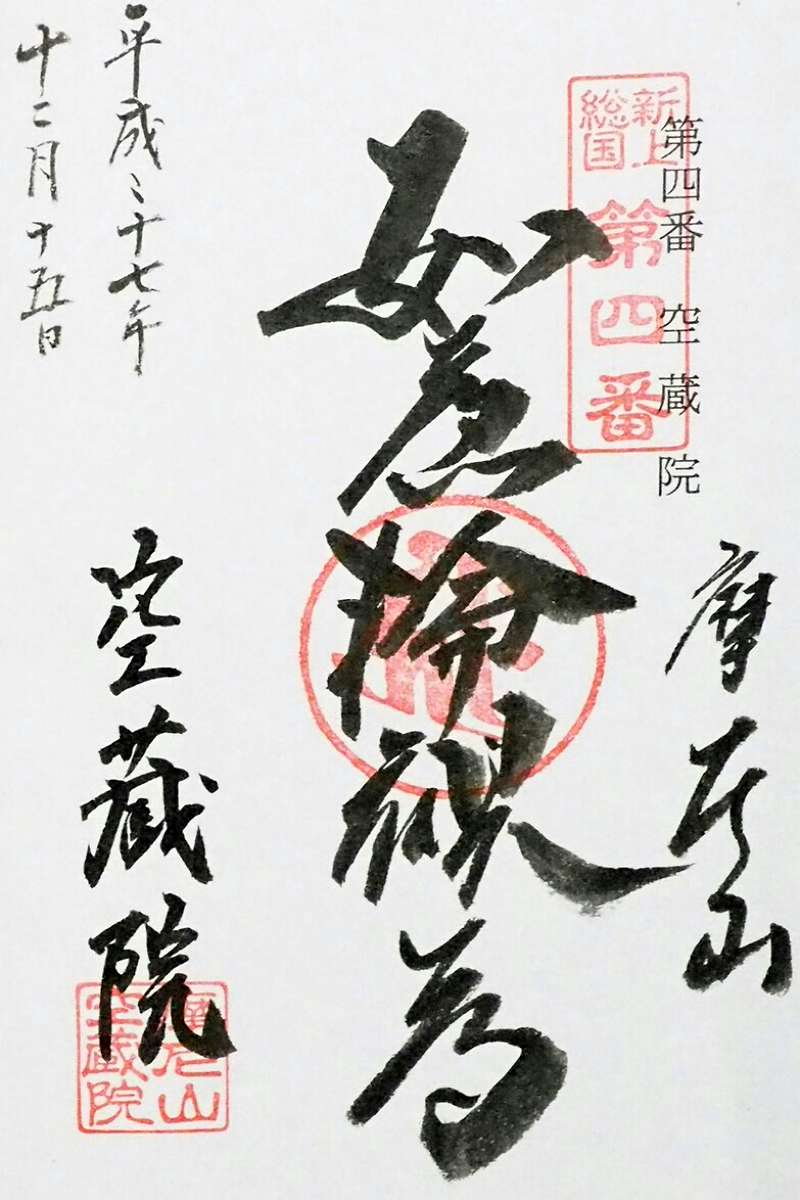 第四番 空蔵院
新上
総国
第四番
摩尼山
如意輪観音
平成二十七年
十二月十五日
空蔵院
摩尼山
空蔵院